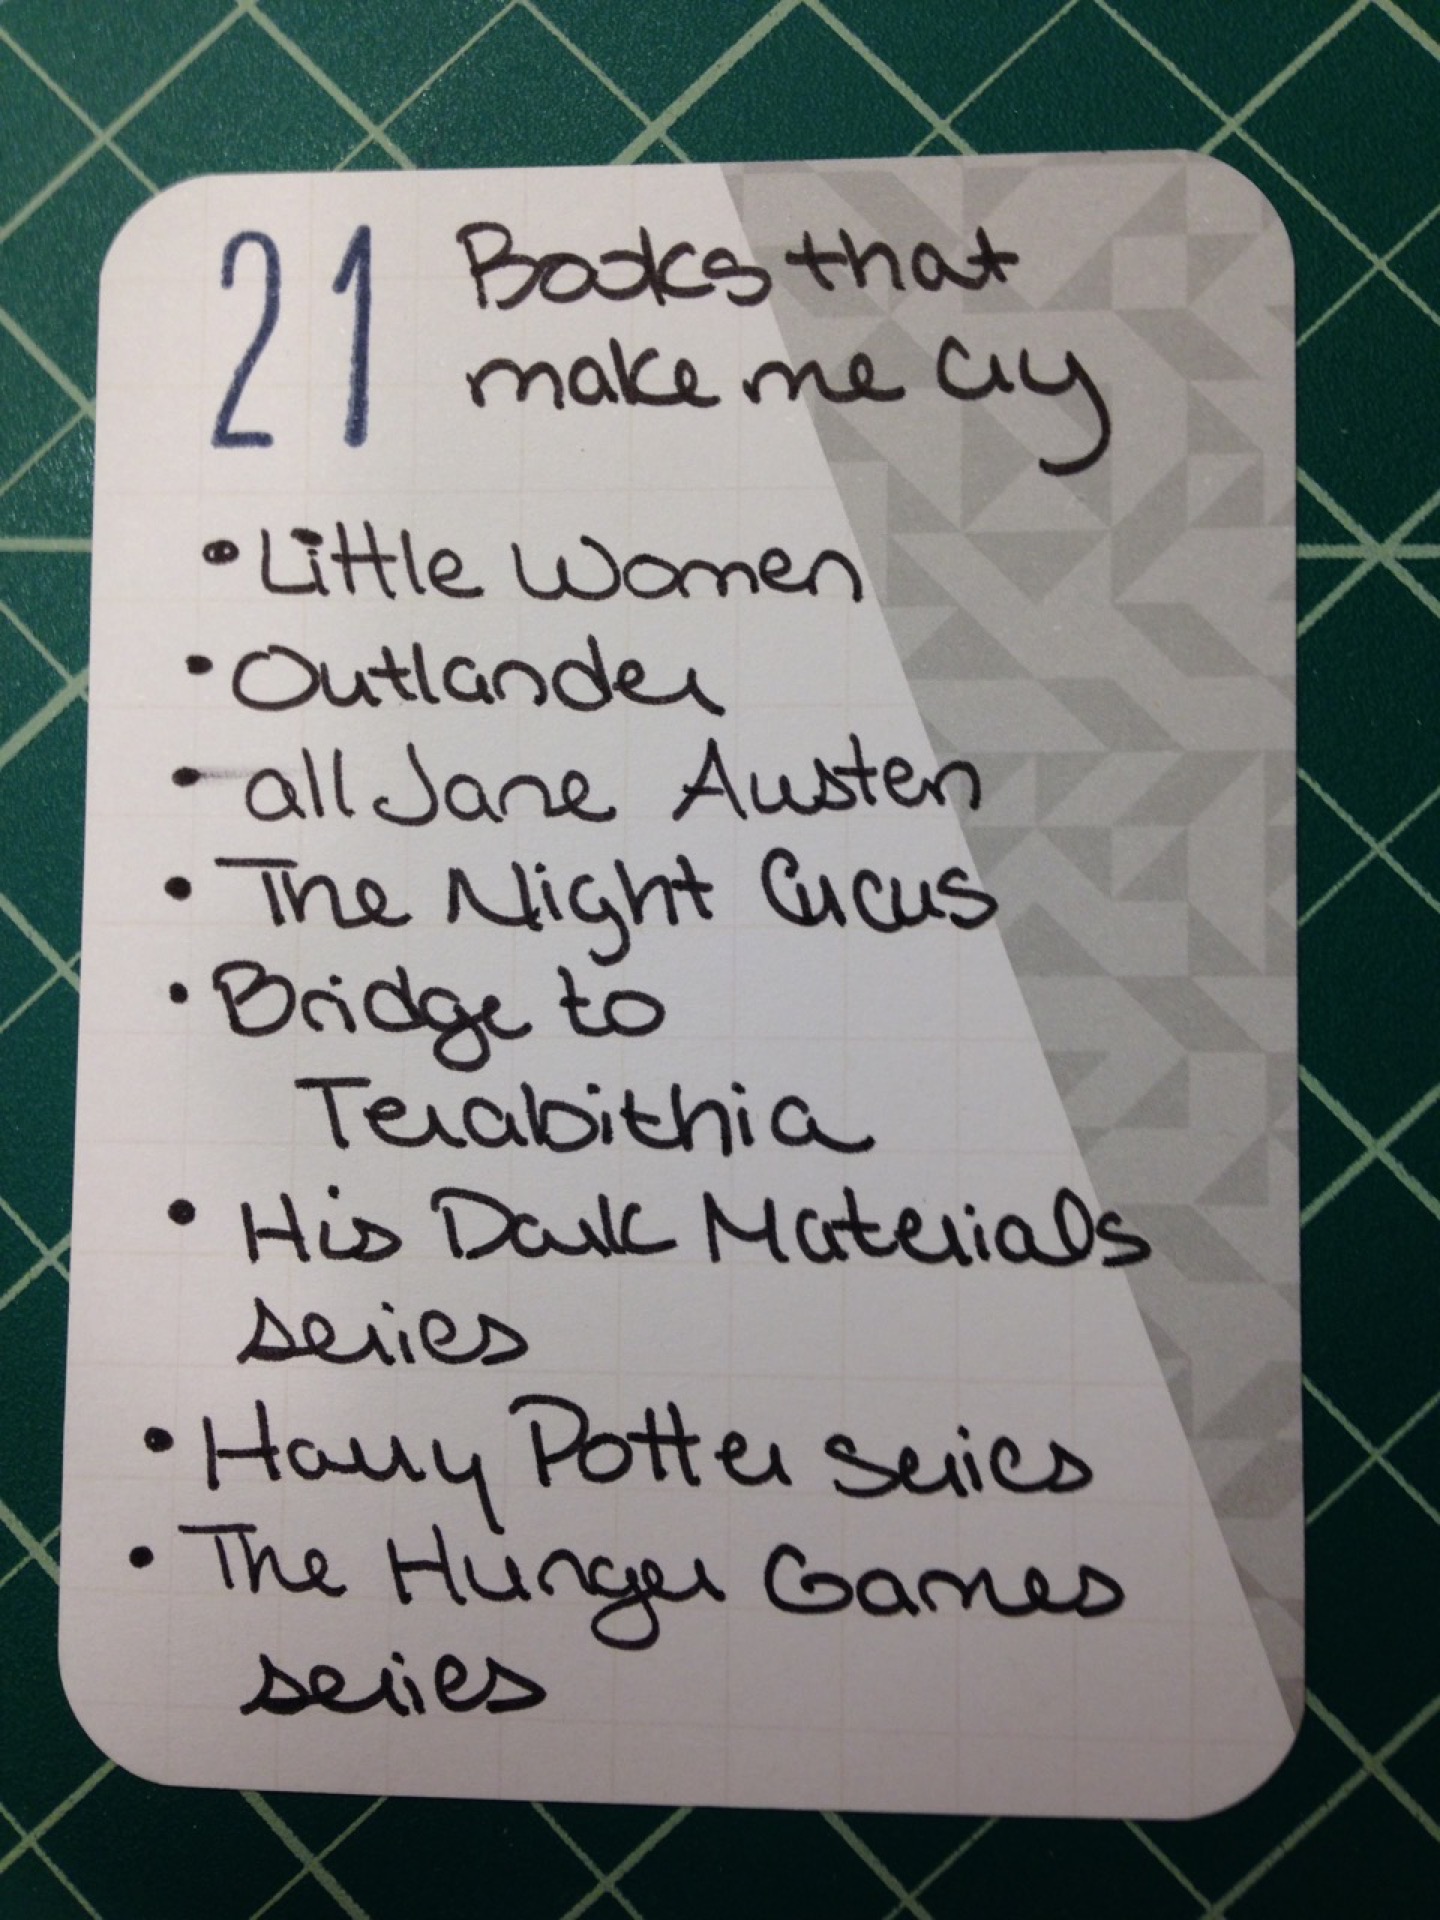 21 Books that
make me cry
• Little Women
• Outlander
• all Jane Austen
• The Night Circus
• Bridge to
Terabithia
• His Dark Materials
series
• Harry Potter series
• The Hunger Games
series